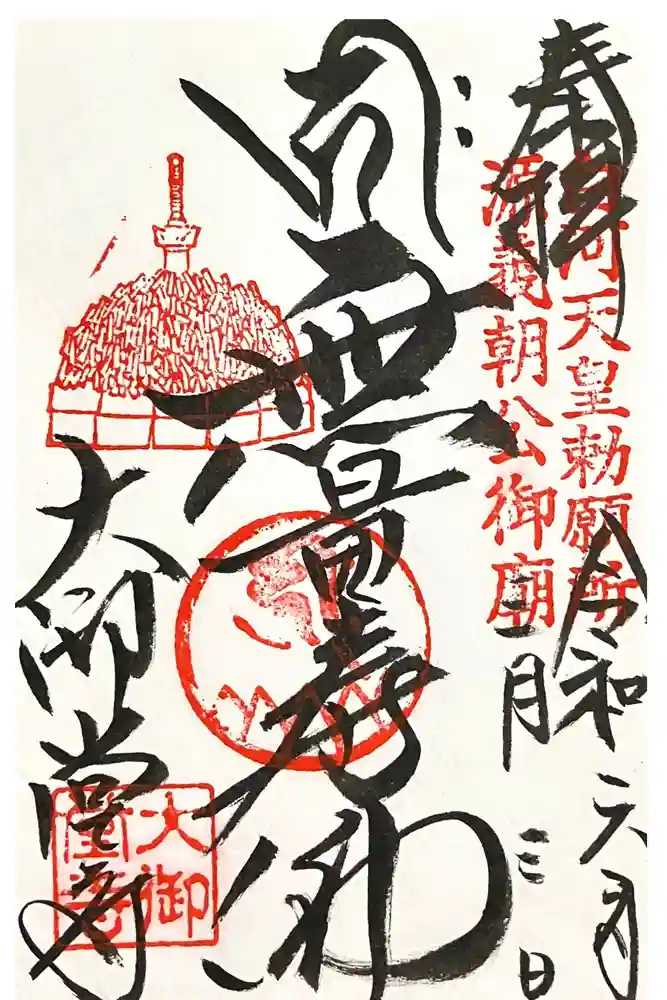 奉拝
白河天皇勅願所
源義朝公御廟
令和六年
三月
三日
無量寿佛
大御堂寺
大御
堂寺